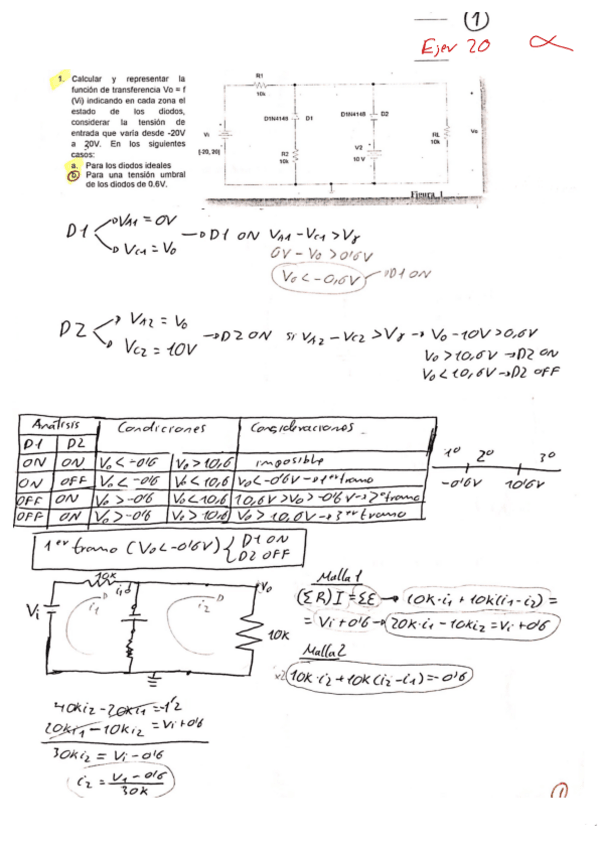 ①
Ejer 20
1. Calcular y representar la
función de transferencia Vo = f
(Vi) indicando en cada zona el
estado de los diodos,
considerar la tensión de
entrada que varía desde -20V
a 20V. En los siguientes
casos:
a. Para los diodos ideales
b. Para una tensión umbral
de los diodos de 0.6V.
R1
10k
D1N4148 D1
D1N4148 D2
Vi
[-20, 20]
R2
10k
V2
10 V
RL
10k
Vo
Figura 1
D1 VA1 = 0V
VC1 = Vo
→ D1 ON VA1 - VC1 > Vγ
0V - Vo > 0'6V
Vo < -0,6V D1 ON
D2 VA2 = Vo
VC2 = 10V
→ D2 ON si VA2 - VC2 > Vγ → Vo - 10V > 0,6V
Vo > 10,6V → D2 ON
Vo < 10,6V → D2 OFF
Análisis Condiciones Consideraciones
D1 D2
ON ON Vo < -0'6 Vo > 10,6 imposible
ON OFF Vo < -0'6 Vo < 10,6 Vo < -0'6V → 1er tramo
OFF ON Vo > -0'6 Vo < 10,6 10,6V > Vo > -0'6V → 2º tramo
OFF ON Vo > -0'6 Vo > 10,6 Vo > 10,6V → 3er tramo
1º 2º 3º
-0'6V 10'6V
1er tramo (Vo < -0'6V) { D1 ON
D2 OFF
10k
Vi
i1
id
i2
Vo
10k
Malla 1
(ΣR)I = ΣE → 10k·i1 + 10k(i1 - i2) =
= Vi + 0'6 → 20k·i1 - 10k i2 = Vi + 0'6
Malla 2
x2 10k·i2 + 10k(i2 - i1) = -0'6
40k i2 - 20k i1 = -1'2
20k i1 - 10k i2 = Vi + 0'6
30k i2 = Vi - 0'6
i2 = V1 - 0'6 / 30k
①